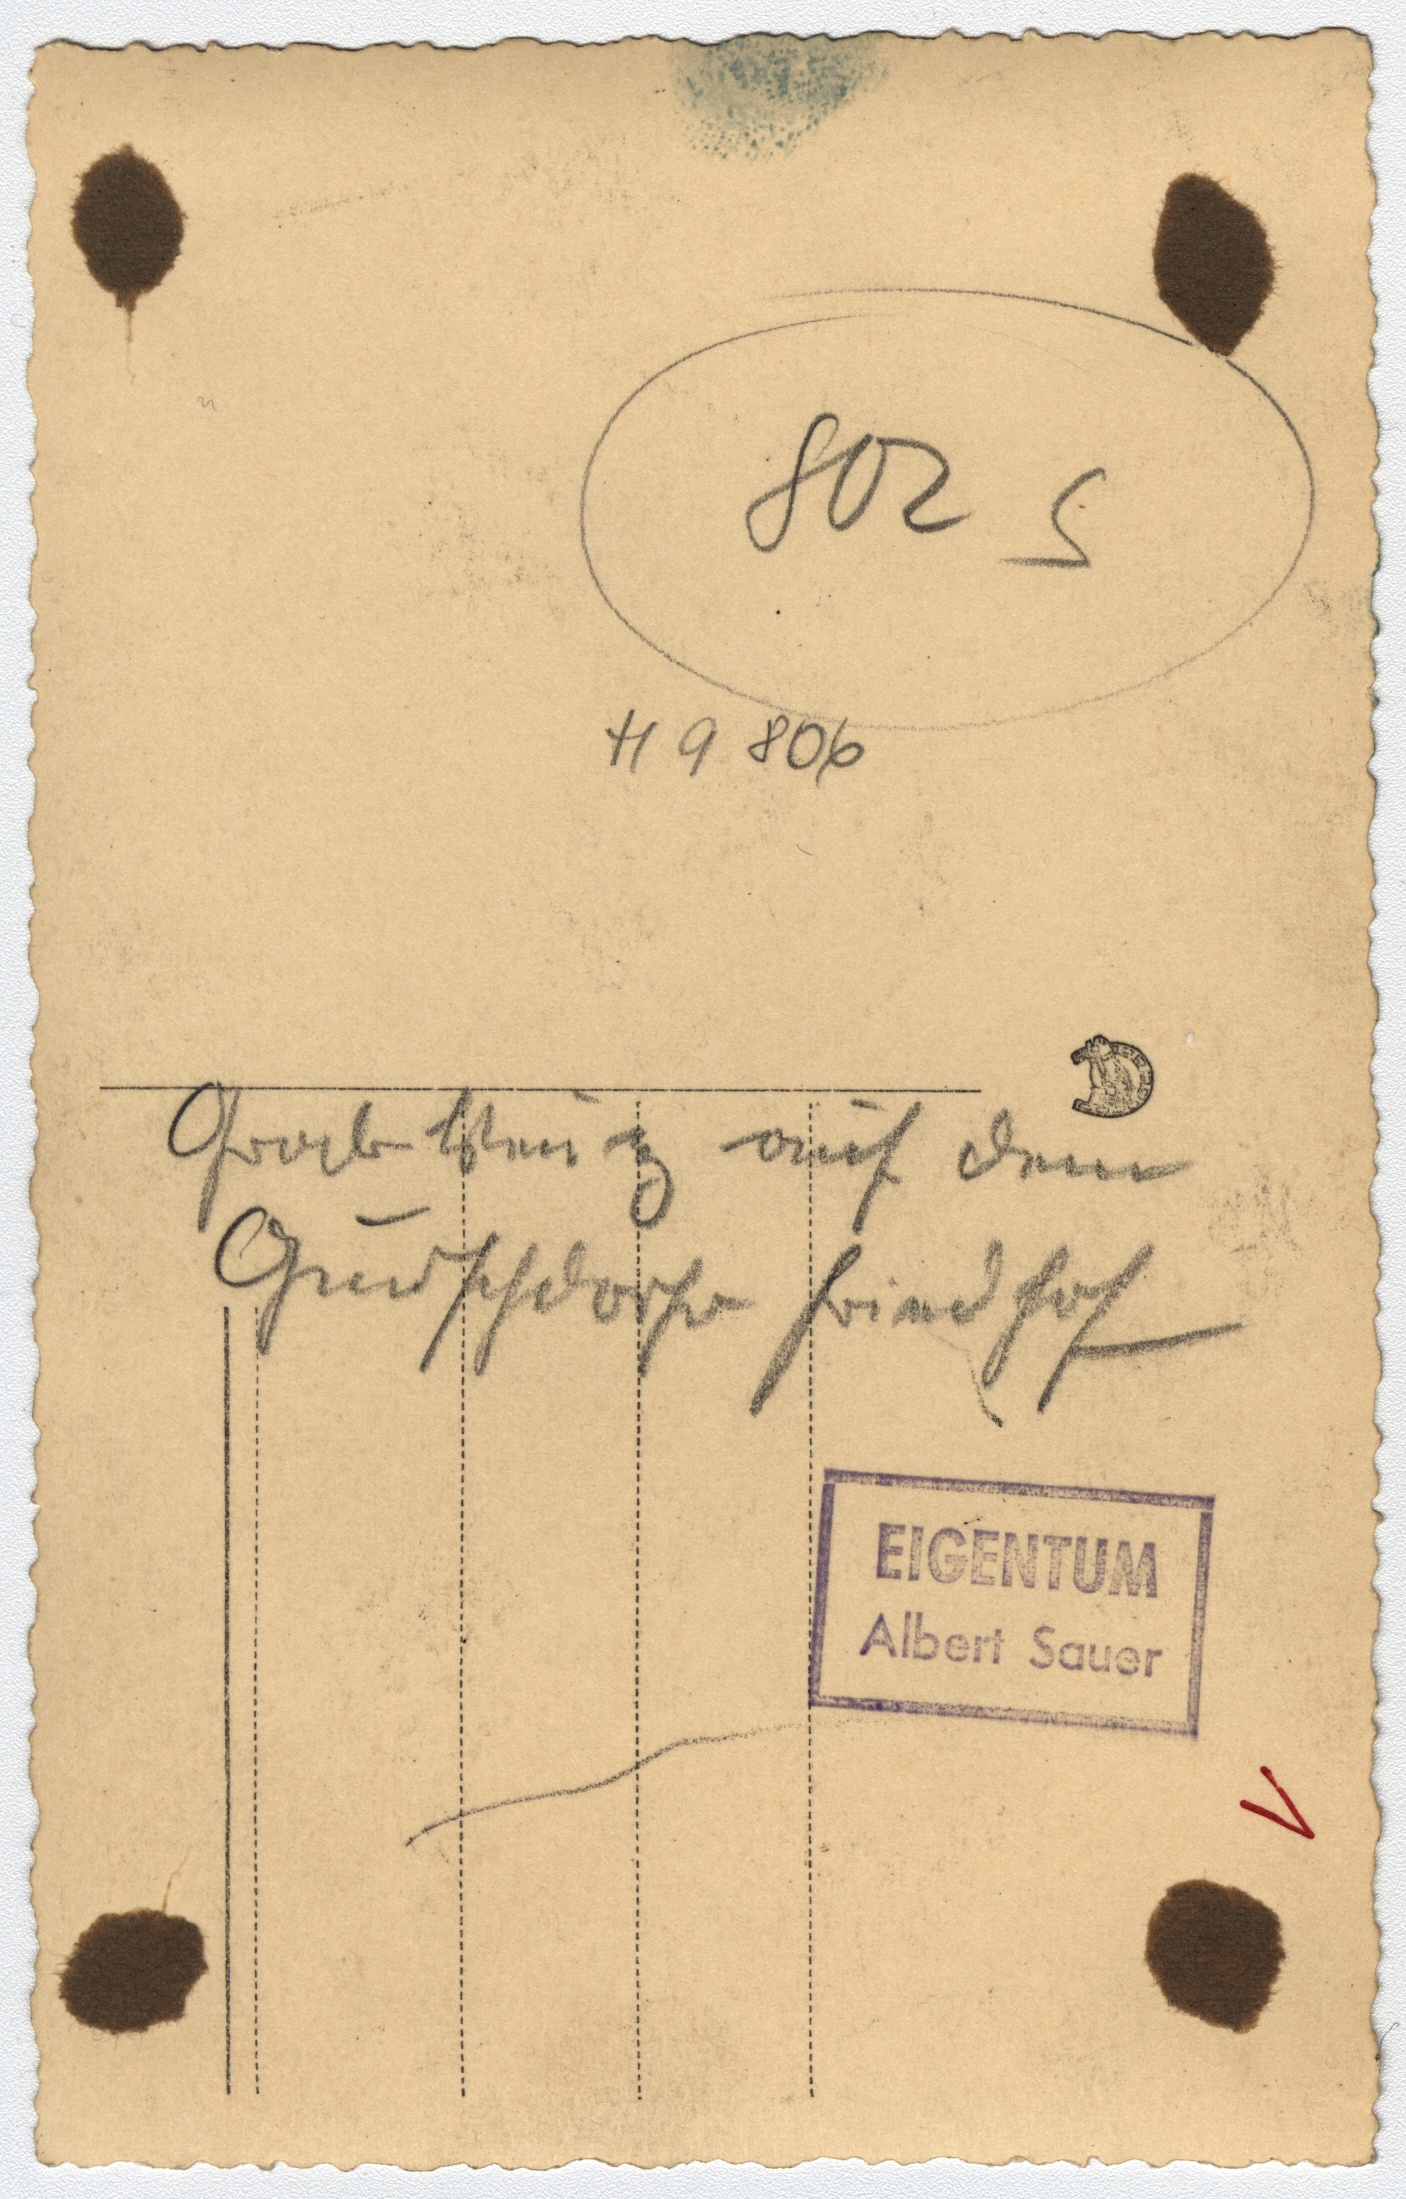 802 S
H 9 806
Grabkreuz auf dem
Gurschdorfer Friedhof
EIGENTUM
Albert Sauer
V